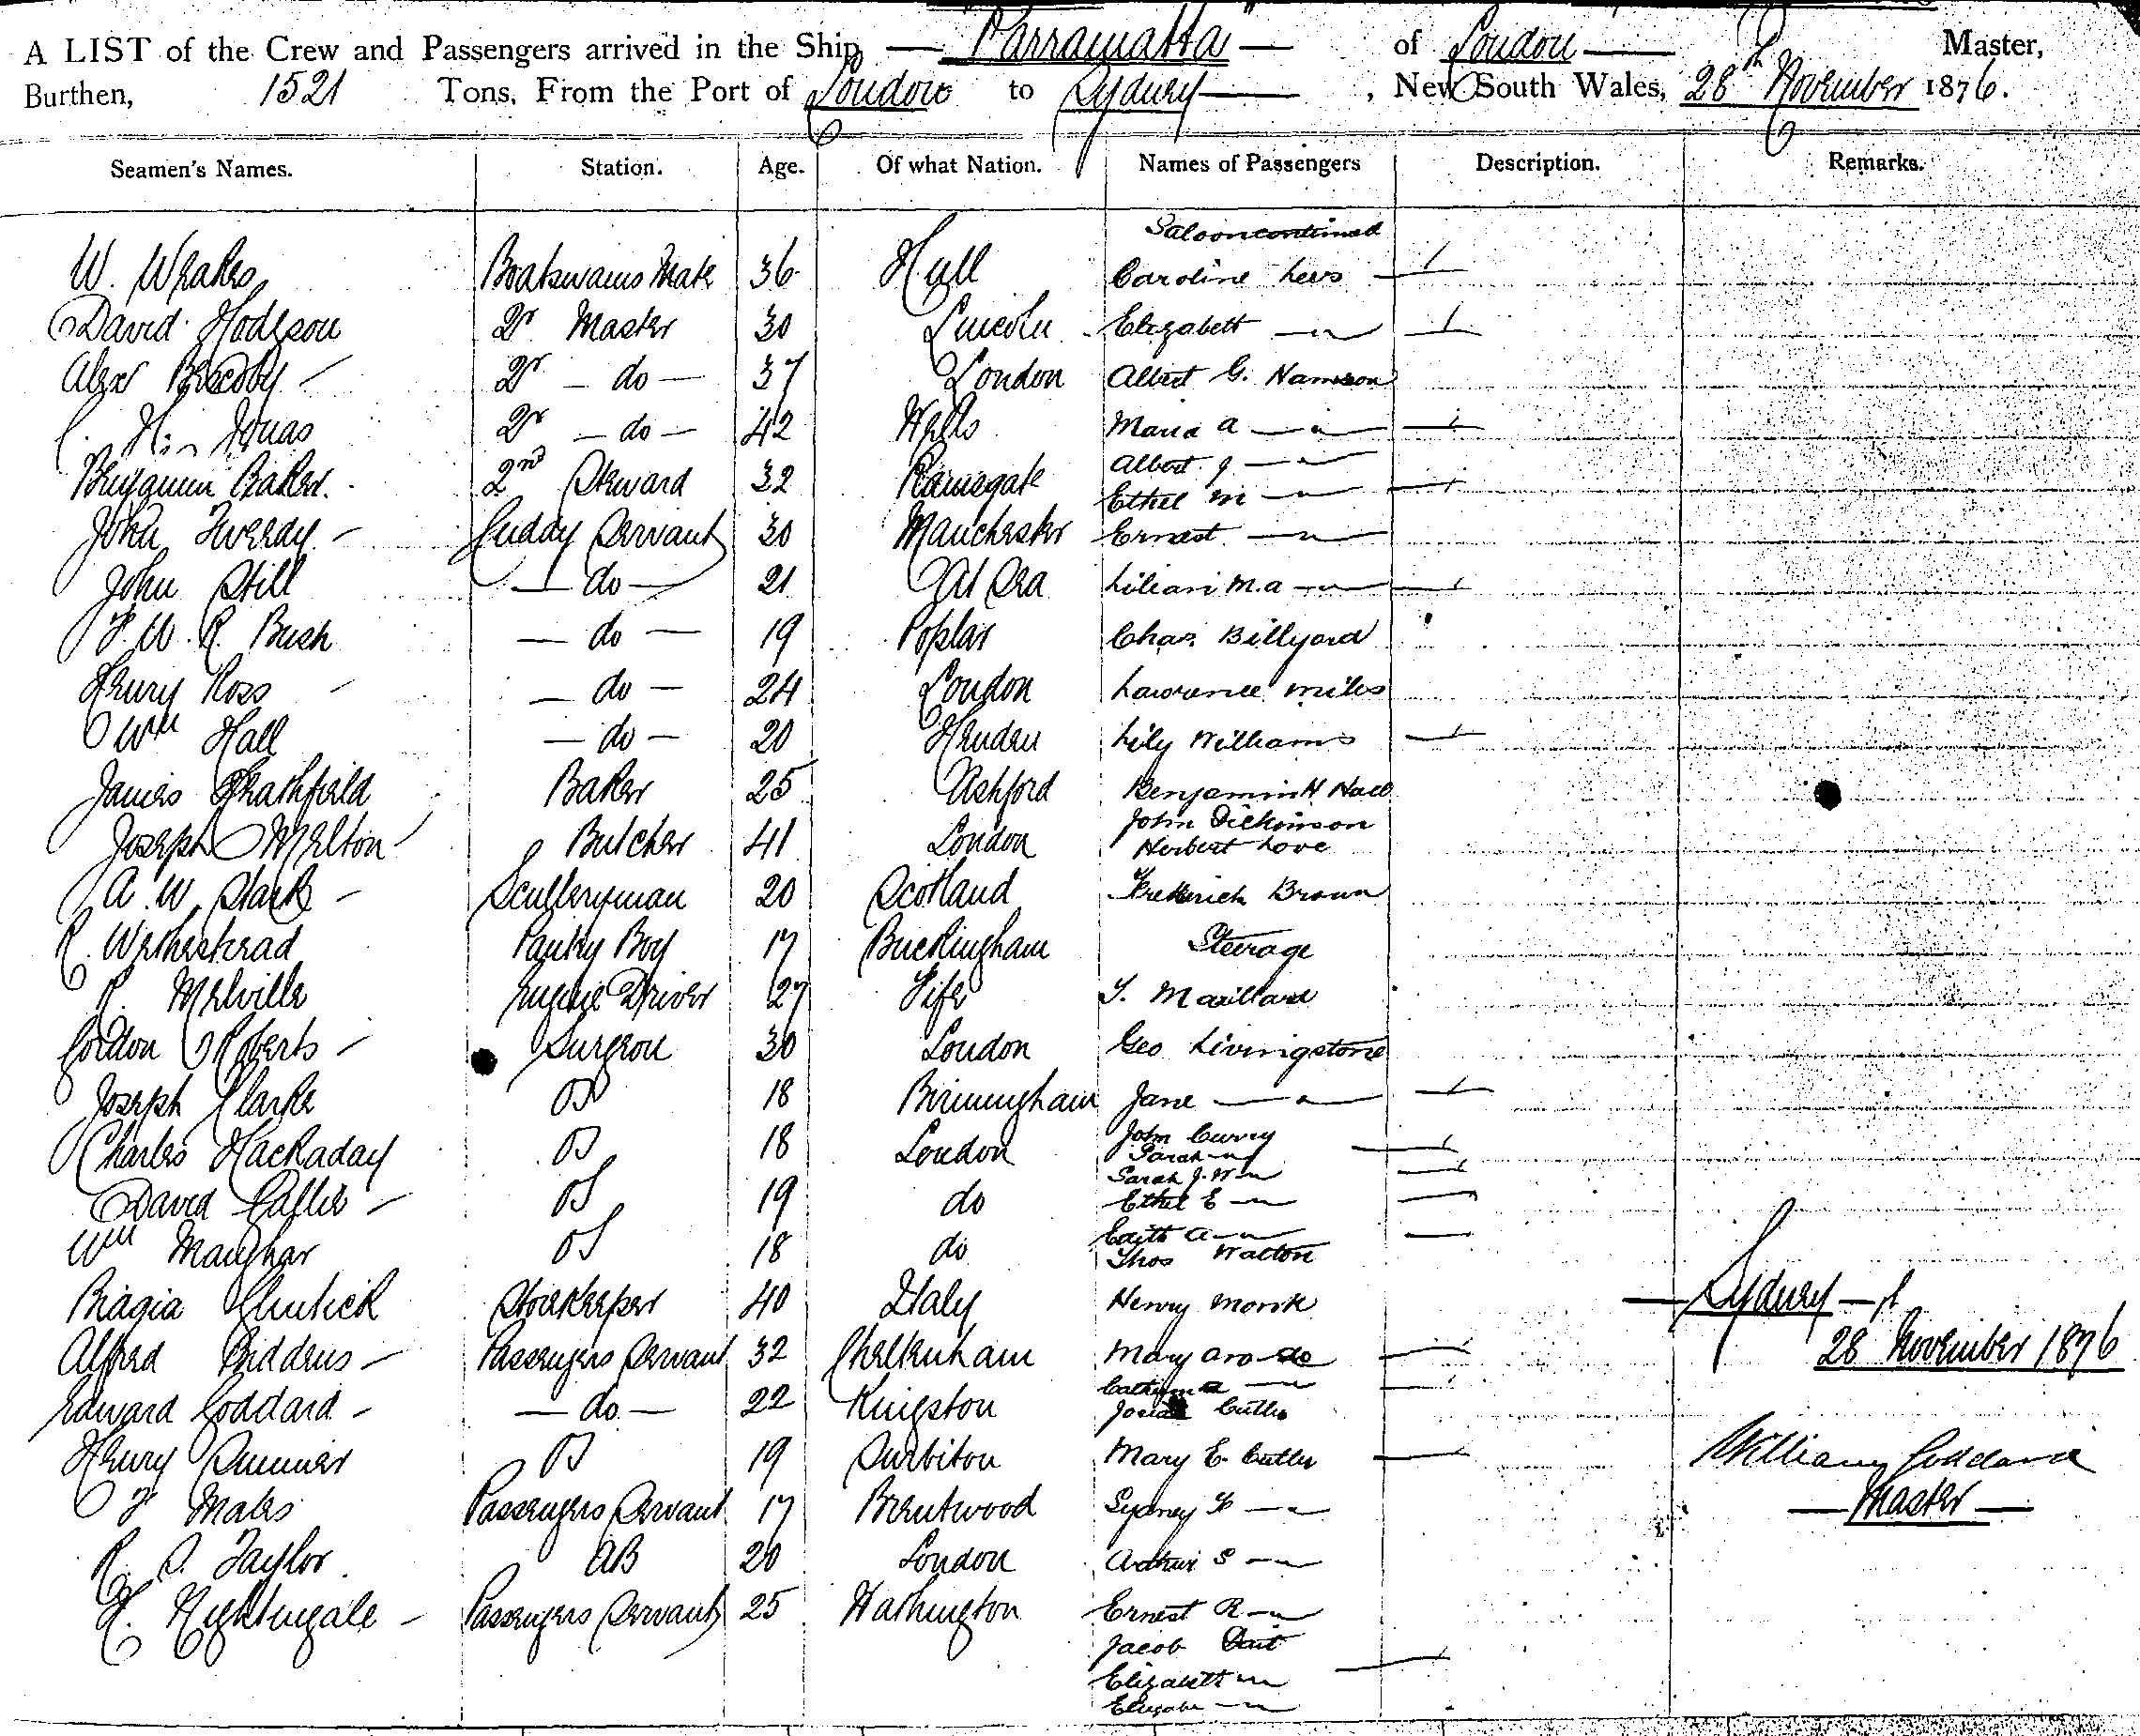 A LIST of the Crew and Passengers arrived in the Ship — "Parramatta" — of London — Master,
Burthen, 1521 Tons, From the Port of London to Sydney — , New South Wales, 28th November 1876.
Seamen's Names. Station. Age. Of what Nation. Names of Passengers Description. Remarks.
Saloon continued
W. Boatswains Mate 36 Hull Caroline
David Hodgson Qr Master 30 Lincoln Elizabeth — " —
Alexr Qr — do — 37 London Albert G.
Qr — do — 42 Wells Maria A — " —
Albert J. — " —
Benjamin Baker. 2nd Steward 32 Ramsgate Ethel M — " —
John Tweedy — Cuddy Servant 30 Manchester Ernest — " —
John Still — do — 21 At Sea Lilian M.A — " —
F W. R. Bush — do — 19 Poplar Chas. Billyard
Henry Ross — — do — 24 London Lawrence Miles
Wm Hall — do — 20 Lily Williams
James Baker 25 Ashford Benjamin H Hall
John Dickinson
Joseph Melton Butcher 41 London Herbert Love
A. W. Stark — Sculleryman 20 Scotland Frederick Brown
R. Wetherhead Pantry Boy 17 Buckingham Steerage
R. Melville Engine Driver 27 Fife
Gordon Roberts — Surgeon 30 London Geo Livingstone
Joseph Clarke OS 18 Birmingham Jane — " —
Charles Hackaday OS 18 London John Curry
Sarah — "
Sarah J. W — "
David — OS 19 do Ethel E — "
Edith A — "
Wm OS 18 do Thos Walton
Storekeeper 40 Italy Henry Monk
— Sydney —
Alfred — Passengers Servant 32 Cheltenham Mary Ann do
28 November 1876
Catherine — "
Edward Goddard — — do — 22 Kingston Cutler
Henry OS 19 Surbiton Mary E. Cutler William Goddard
F Males Passengers Servant 17 Brentwood Sydney F — " — Master —
R. S. Taylor AB 20 London Arthur S — "
Nightingale — Passengers Servant 25 Ernest R — "
Jacob
Elizabeth "
— "